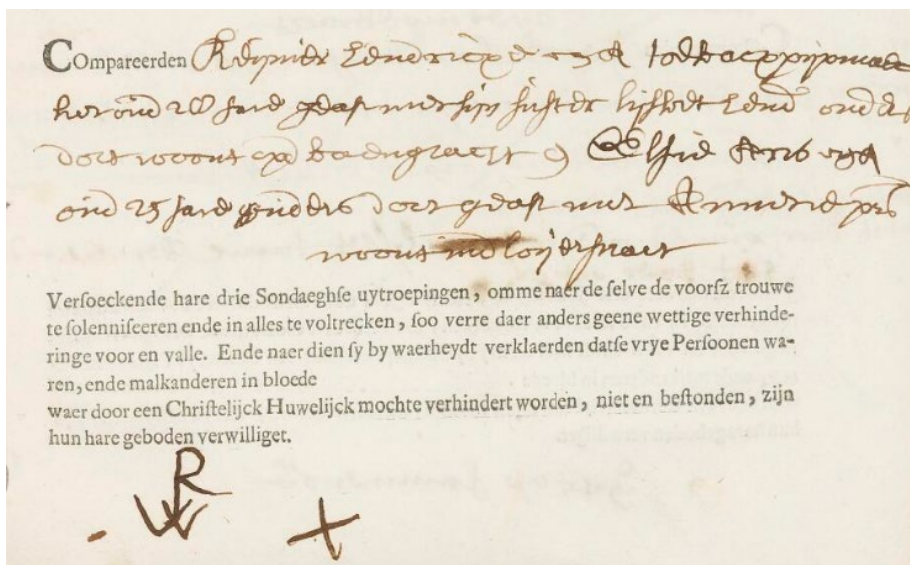 Compareerden Reijnier Hendricxe van tobbacqpijpmae
ker oud 28 Jare geas met sijn suster lijsbet Hend ouders
doot woont op Baengracht & Elsie van
oud 25 Jare ouders doot geas met
woont in loijerstraet
Versoeckende hare drie Sondaeghse uytroepingen, omme naer de selve de voorsz trouwe
te solenniseeren ende in alles te voltrecken, soo verre daer anders geene wettige verhinde-
ringe voor en valle. Ende naer dien sy by waerheydt verklaerden datse vrye Persoonen wa-
ren, ende malkanderen in bloede
waer door een Christelijck Huwelijck mochte verhindert worden, niet en bestonden, zijn
hun hare geboden verwilliget.